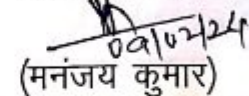 09/02/24
(मनंजय कुमार)